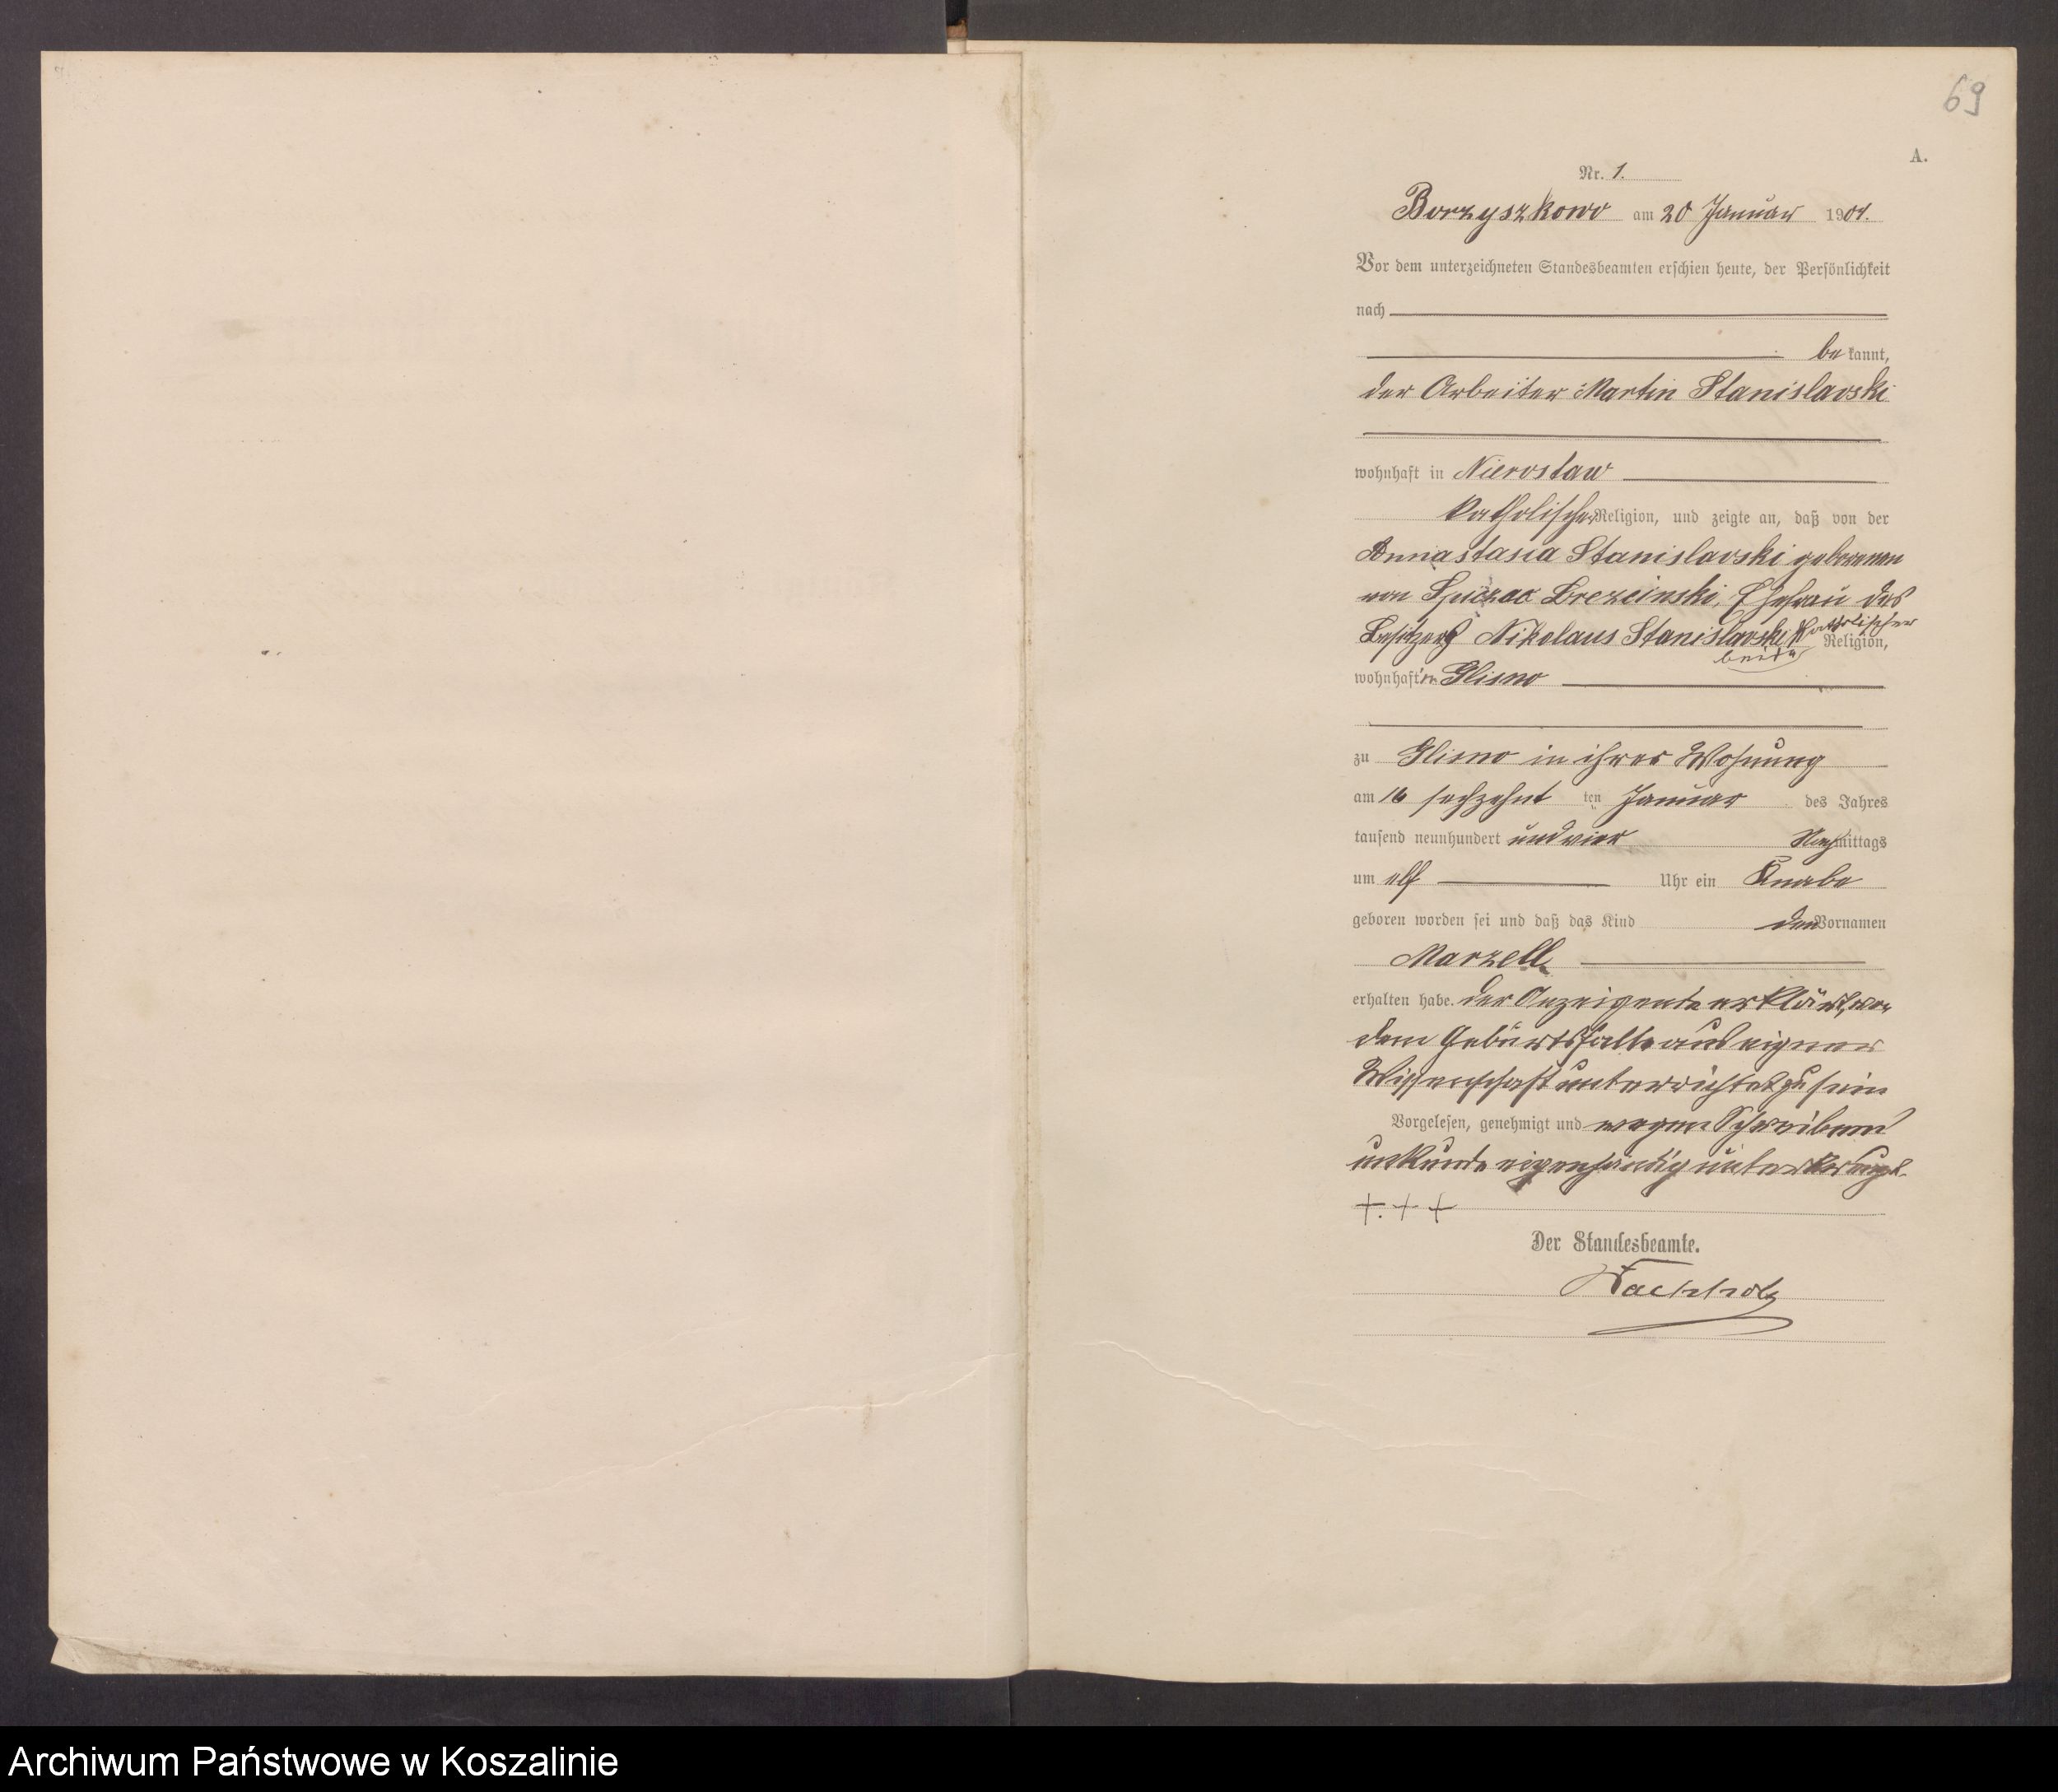 69
A.
Nr. 1.
Borzyszkowo am 20 Januar 1904.
Vor dem unterzeichneten Standesbeamten erschien heute, der Persönlichkeit
nach
be kannt,
der Arbeiter Martin Stanislavski
wohnhaft in Nierostaw
katholischer Religion, und zeigte an, daß von der
Annastasia Stanislavski geborenen
von Brezcinski, Ehefrau des
Besitzers Nikolaus Stanislavski katholischer Religion,
beide
wohnhaft in Glisno
zu Glisno in ihrer Wohnung
am 16 sechzehnt ten Januar des Jahres
tausend neunhundert und vier Nachmittags
um elf Uhr ein Knabe
geboren worden sei und daß das Kind den Vornamen
Marzell
erhalten habe. der Anzeigende erklärt, von
dem Geburtsfalle aus eigener
Wissenschaft unterrichtet zu sein
Vorgelesen, genehmigt und wegen Schreibens
unkunde eigenhändig unterkreuzt.
+. + +
Der Standesbeamte.
Wachholz
Archiwum Państwowe w Koszalinie